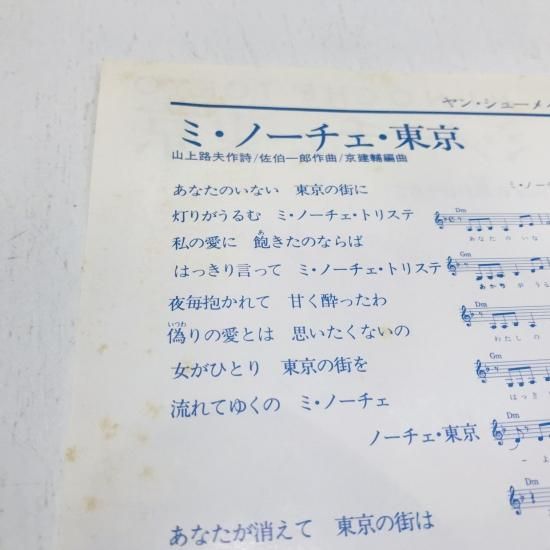 ヤン・シューメイ
ミ・ノーチェ・東京
山上路夫作詩/佐伯一郎作曲/京建輔編曲
あなたのいない 東京の街に
灯りがうるむ ミ・ノーチェ・トリステ
私の愛に 飽きたのならば
はっきり言って ミ・ノーチェ・トリステ
夜毎抱かれて 甘く酔ったわ
偽りの愛とは 思いたくないの
女がひとり 東京の街を
流れてゆくの ミ・ノーチェ
ノーチェ・東京
あなたが消えて 東京の街は
ミ・ノー
Dm
あなたのいな
Gm
あかりがうる
Dm
わたしの
Gm
はっき
Dm
ーよ
Dm